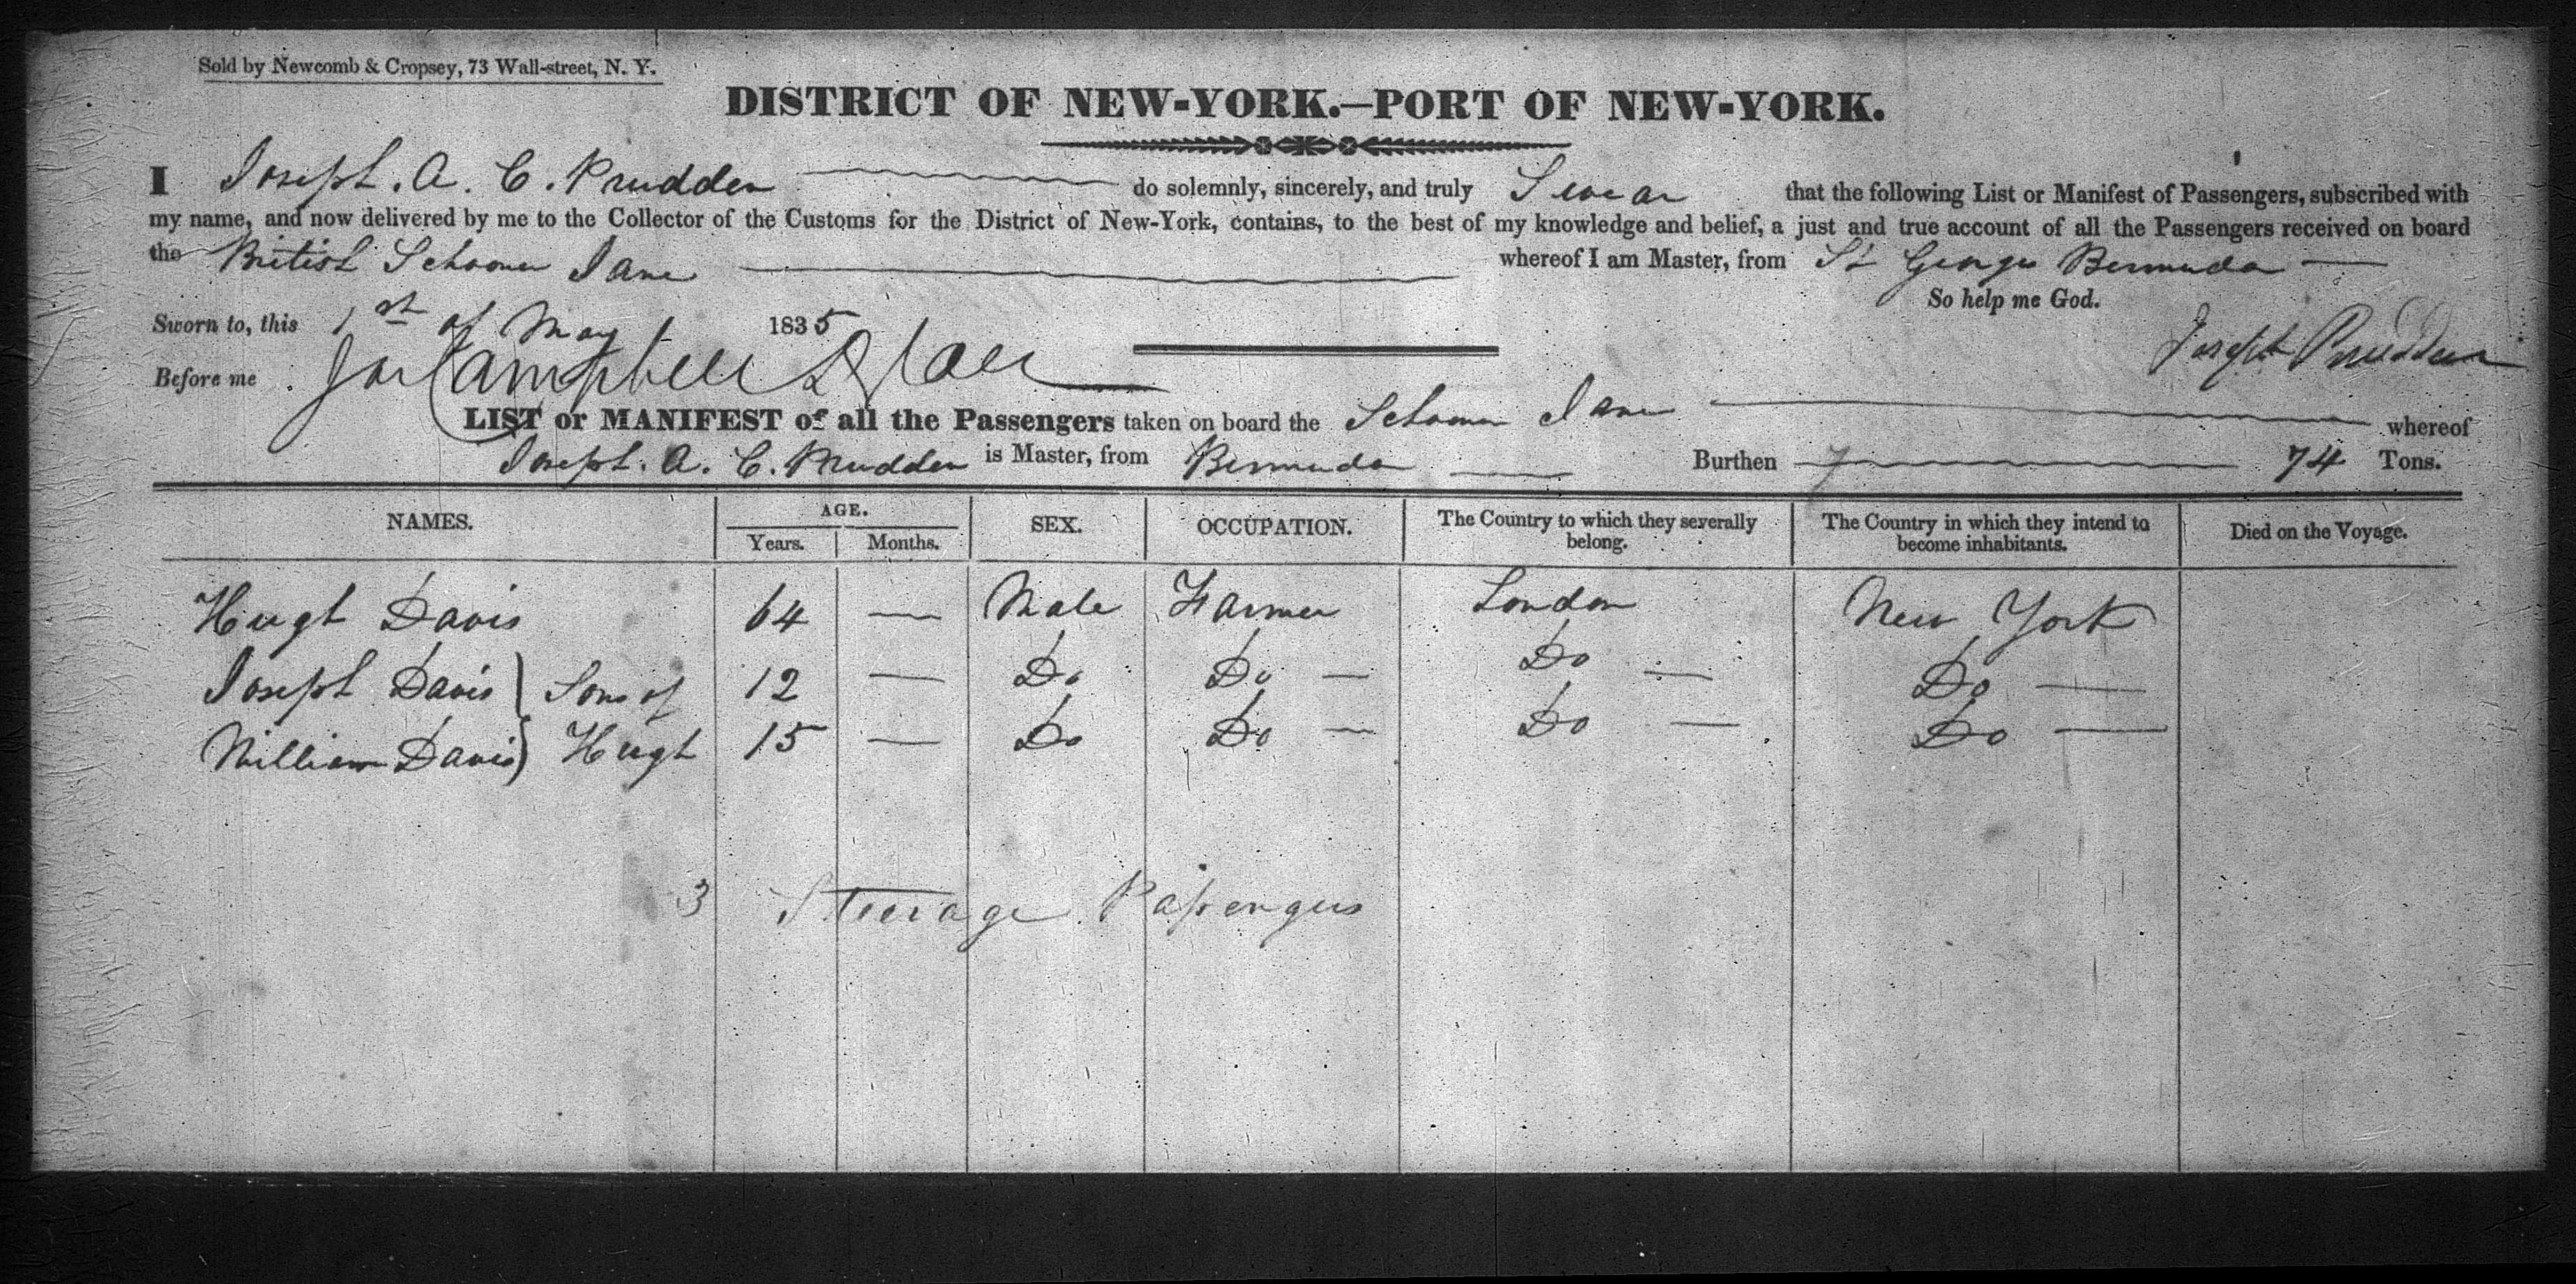 Sold by Newcomb & Cropsey, 73 Wall-street, N. Y.
DISTRICT OF NEW-YORK.—PORT OF NEW-YORK.
I Joseph. A. C. Prudden do solemnly, sincerely, and truly Swear that the following List or Manifest of Passengers, subscribed with
my name, and now delivered by me to the Collector of the Customs for the District of New-York, contains, to the best of my knowledge and belief, a just and true account of all the Passengers received on board
the British Schooner Jane whereof I am Master, from St Georges Bermuda
So help me God.
Sworn to, this 1st of May 1835
Joseph Prudden
Before me Campbell
LIST or MANIFEST of all the Passengers taken on board the Schooner Jane whereof
Joseph. A. C. Prudden is Master, from Bermuda Burthen 74 Tons.
NAMES. AGE. SEX. OCCUPATION. The Country to which they severally belong. The Country in which they intend to become inhabitants. Died on the Voyage.
Years. Months.
Hugh Davis 64 — Male Farmer London New York
Joseph Davis } Sons of 12 — Do Do — Do — Do —
William Davis } Hugh 15 — Do Do — Do — Do —
3 Steerage Passengers